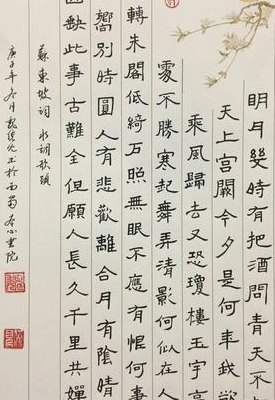 明月幾時有把酒問青天不
天上宮闕今夕是何年我欲
乘風歸去又恐瓊樓玉宇高
處不勝寒起舞弄清影何似在人
轉朱閣低綺戶照無眠不應有恨何事
嚮別時圓人有悲歡離合月有陰晴
圓缺此事古難全但願人長久千里共嬋
蘇東坡詞 水調歌頭
庚子年冬月 书於西蜀 書院